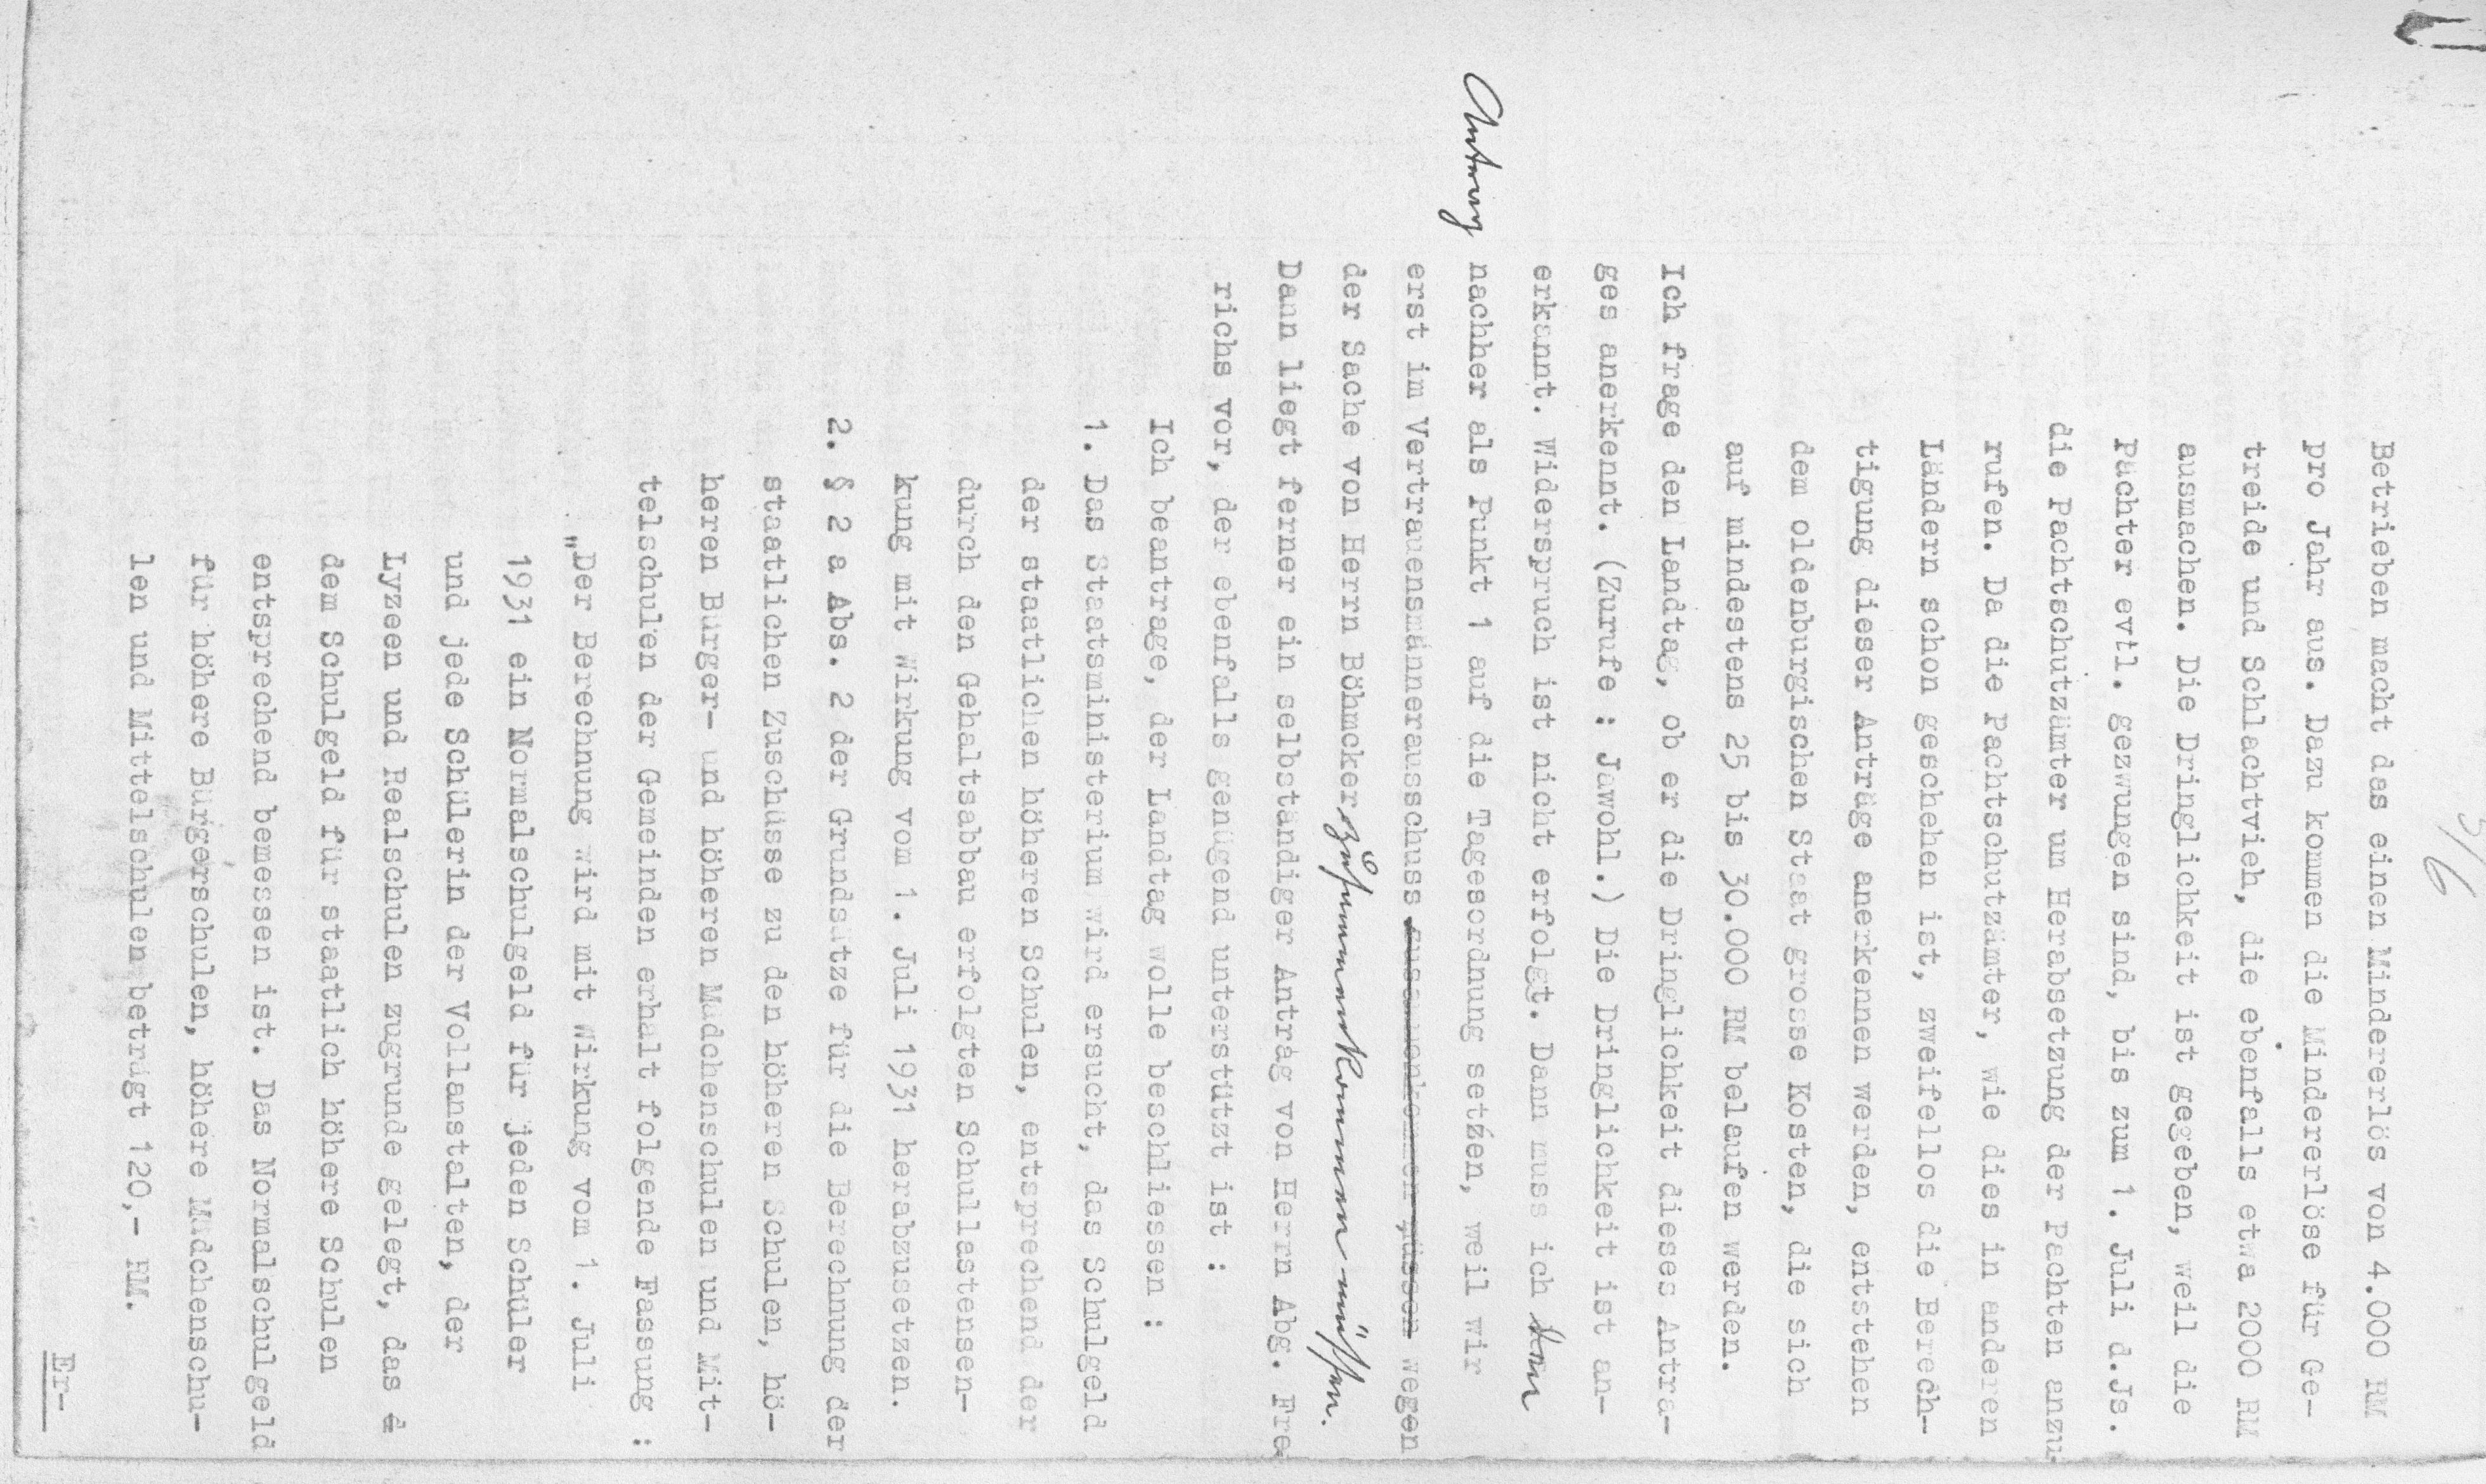 Betrieben macht das einen Mindererlös von 4.000 RM
pro Jahr aus. Dazu kommen die Mindererlöse für Ge-
treide und Schlachtvieh, die ebenfalls etwa 2000 RM
ausmachen. Die Dringlichkeit ist gegeben, weil die
Pächter evtl. gezwungen sind, bis zum 1. Juli d.Js.
die Pachtschutzämter um Herabsetzung der Pachten anzu-
rufen. Da die Pachtschutzämter, wie dies in anderen
Ländern schon geschehen ist, zweifellos die Berech-
tigung dieser Anträge anerkennen werden, entstehen
dem oldenburgischen Staat grosse Kosten, die sich
auf mindestens 25 bis 30.000 RM belaufen werden.
Ich frage den Landtag, ob er die Dringlichkeit dieses Antra-
ges anerkennt. (Zurufe : Jawohl.) Die Dringlichkeit ist an-
erkannt. Widerspruch ist nicht erfolgt. Dann muss ich den
Antrag nachher als Punkt 1 auf die Tagesordnung setzen, weil wir
erst im Vertrauensmännerausschuss zusammenkommen müssen wegen
der Sache von Herrn Böhmcker zusammenkommen müssen.
Dann liegt ferner ein selbständiger Antrag von Herrn Abg. Fre
richs vor, der ebenfalls genügend unterstützt ist :
Ich beantrage, der Landtag wolle beschliessen :
1. Das Staatsministerium wird ersucht, das Schulgeld
der staatlichen höheren Schulen, entsprechend der
durch den Gehaltsabbau erfolgten Schullastensen-
kung mit Wirkung vom 1. Juli 1931 herabzusetzen.
2. § 2 a Abs. 2 der Grundsätze für die Berechnung der
staatlichen Zuschüsse zu den höheren Schulen, hö-
heren Bürger- und höheren Mädchenschulen und Mit-
telschulen der Gemeinden erhält folgende Fassung :
„Der Berechnung wird mit Wirkung vom 1. Juli
1931 ein Normalschulgeld für jeden Schüler
und jede Schülerin der Vollanstalten, der
Lyzeen und Realschulen zugrunde gelegt, das
dem Schulgeld für staatlich höhere Schulen
entsprechend bemessen ist. Das Normalschulgeld
für höhere Bürgerschulen, höhere Mädchenschu-
len und Mittelschulen beträgt 120,- RM.
Er-